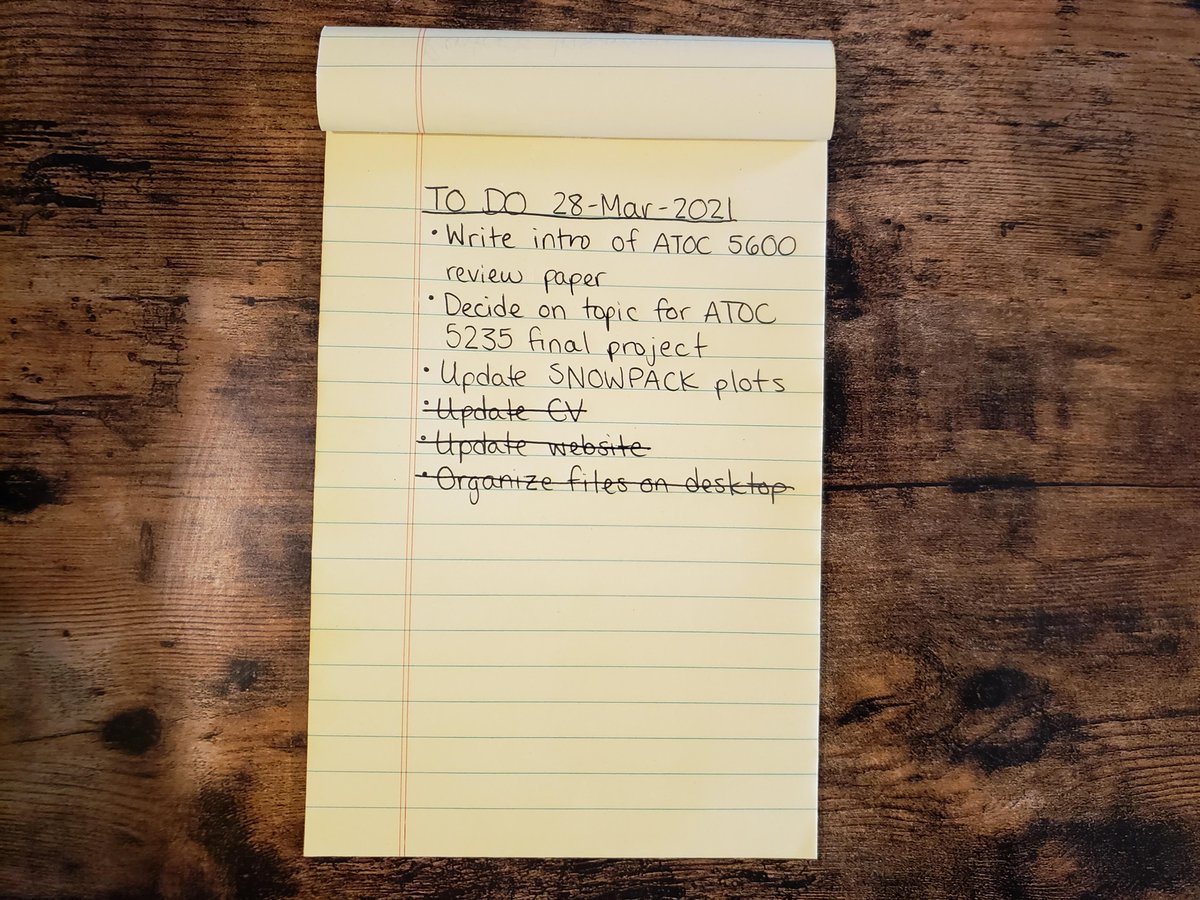 TO DO 28-Mar-2021
• Write intro of ATOC 5600
review paper
• Decide on topic for ATOC
5235 final project
• Update SNOWPACK plots
• Update CV
• Update website
• Organize files on desktop